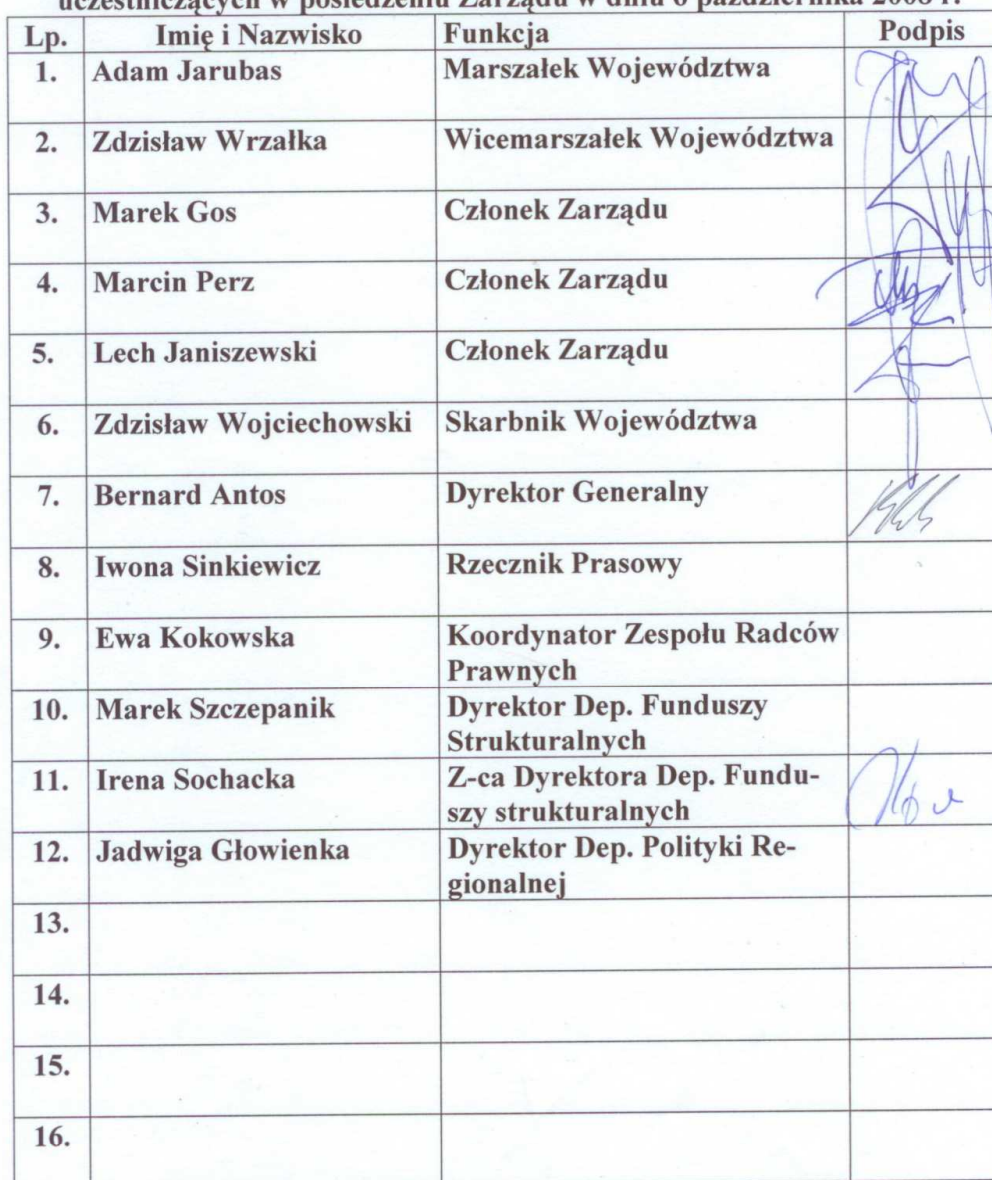 uczestniczących w posiedzeniu Zarządu w dniu 6 października 2008 r.
Lp. Imię i Nazwisko Funkcja Podpis
1. Adam Jarubas Marszałek Województwa
2. Zdzisław Wrzałka Wicemarszałek Województwa
3. Marek Gos Członek Zarządu
4. Marcin Perz Członek Zarządu
5. Lech Janiszewski Członek Zarządu
6. Zdzisław Wojciechowski Skarbnik Województwa
7. Bernard Antos Dyrektor Generalny
8. Iwona Sinkiewicz Rzecznik Prasowy
9. Ewa Kokowska Koordynator Zespołu Radców
Prawnych
10. Marek Szczepanik Dyrektor Dep. Funduszy
Strukturalnych
11. Irena Sochacka Z-ca Dyrektora Dep. Fundu-
szy strukturalnych
12. Jadwiga Głowienka Dyrektor Dep. Polityki Re-
gionalnej
13.
14.
15.
16.